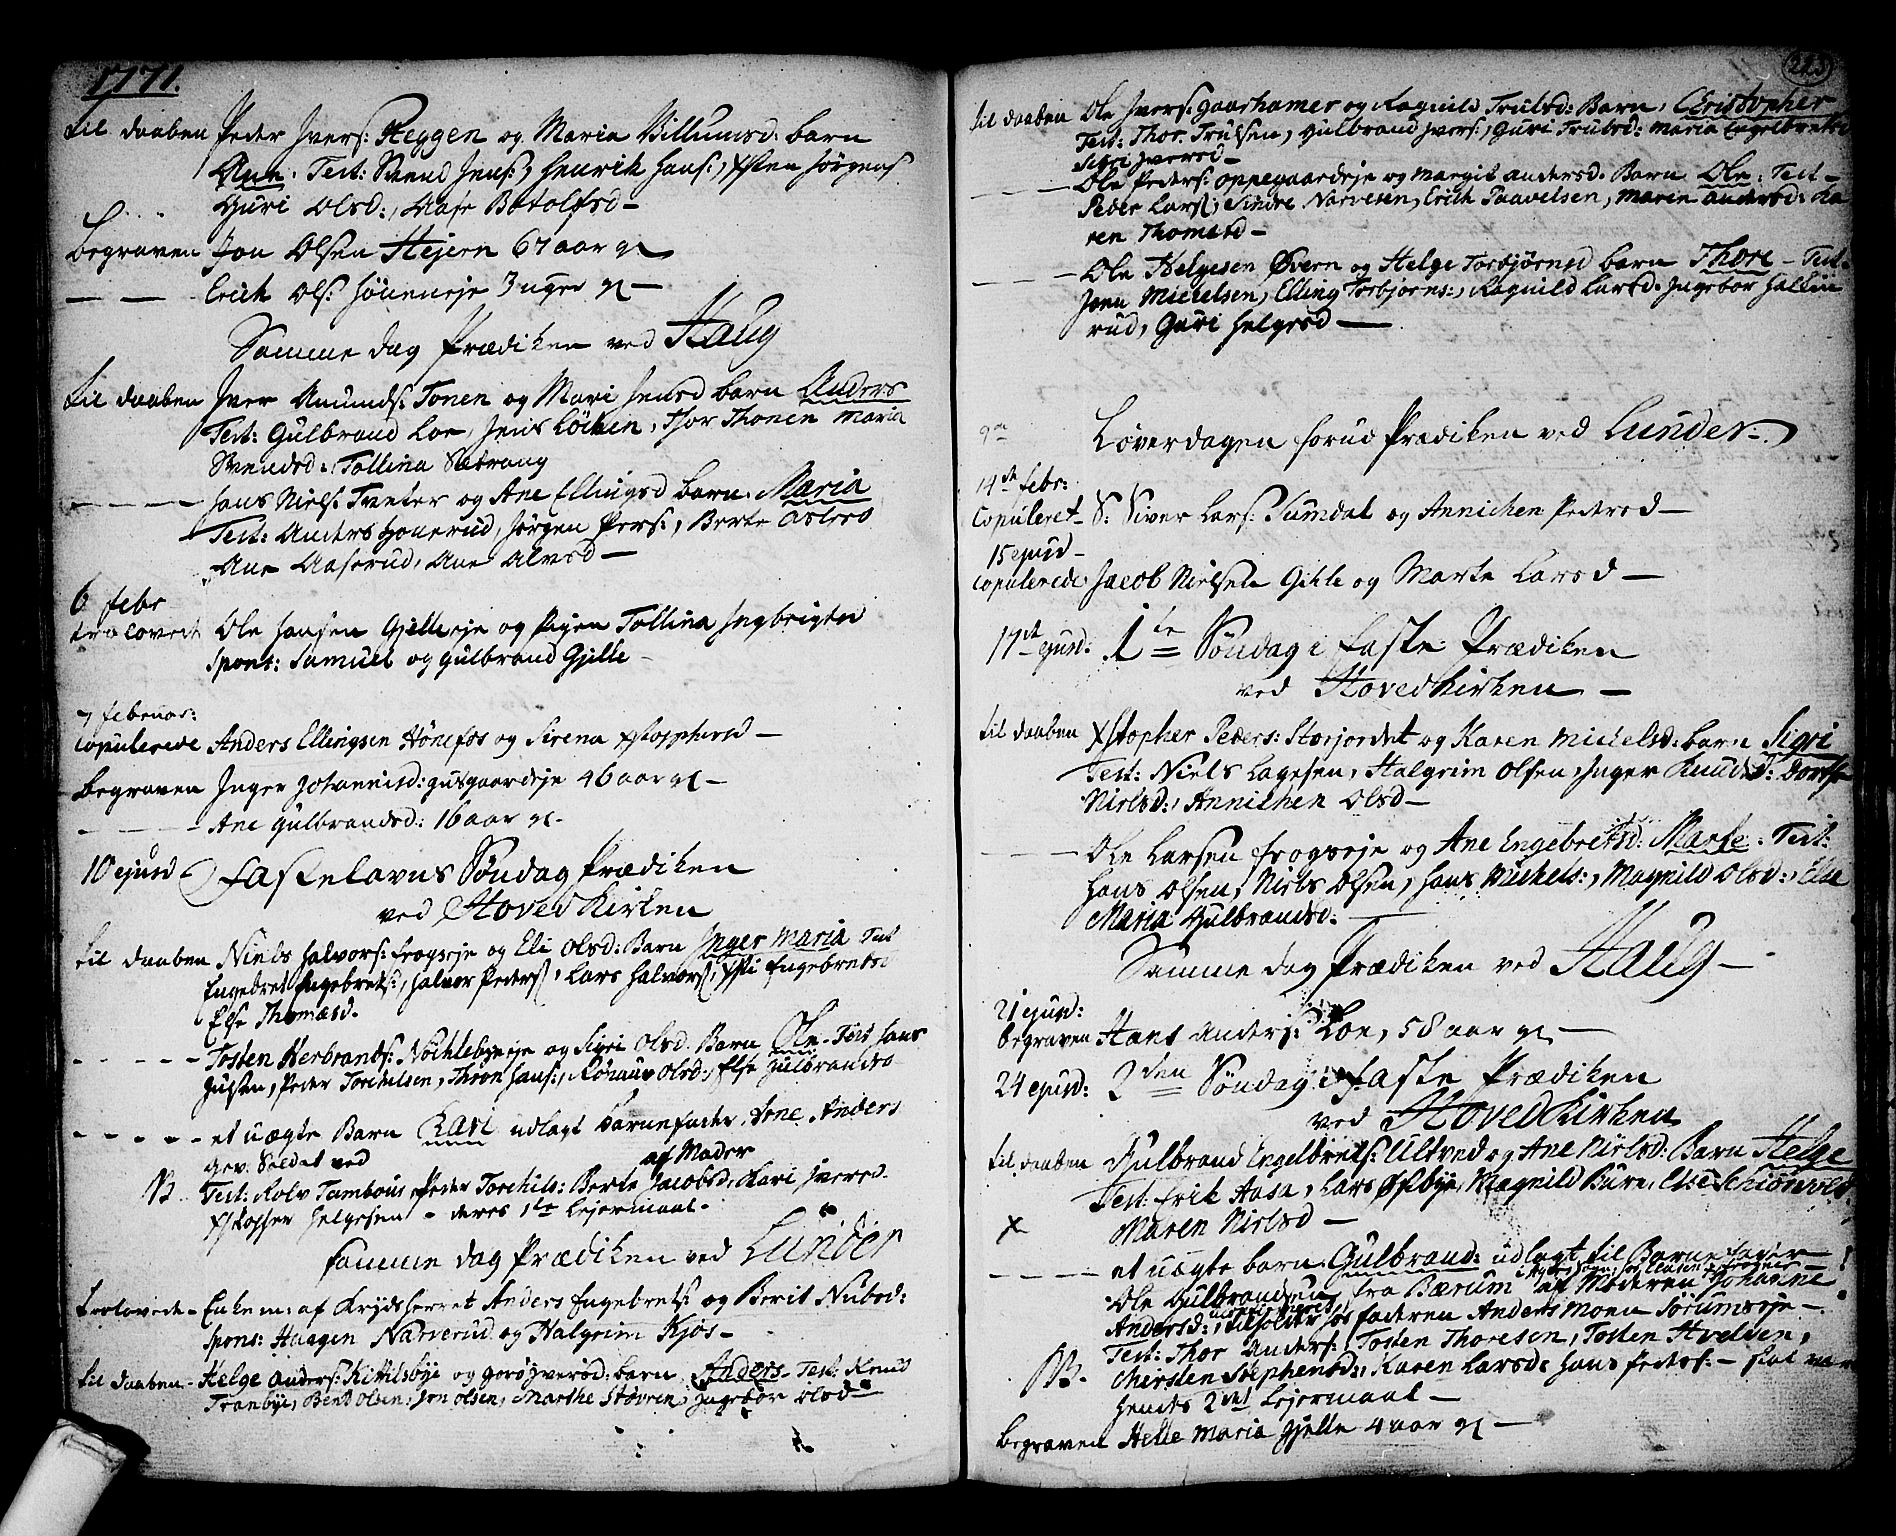 1771.
til daaben Peder Ivers: Heggen og Maria Villumsd: barn
Ane. Test: Svend Jens:, Henrik Hans:, Xsten Jørgens
Guri Olsd:, Aase Botolfsd–
Begraven Jon Olsen Hejern 67 aar
— — Erich Ols: Høneneje 3 uger
Samme dag Prædiken ved Haug
til daaben Iver Amunds: Tonen og Mari Jensd barn Anders
Test: Gulbrand Loe, Jens Løkken, Thor Thonen Maria
Svendsd:, Tollina Sætrang
— — Hans Niels: Tveter og Ane Ellingsd barn Maria
Test: Anders Honerud, Jørgen Pers:, Berte Ostero
Ane Aaserud, Ane Alvsd—
6 febr
trolovet Ole Hansen Gjelleeje og Pigen Tollina Ingbrigtsd
Spons: Samuel og Gulbrand Gjelle
7 februar:
Copulerede Anders Ellingsen Hønefos og Sirena Xstophersd—
Begraven Inger Johannisd: gusgaardeje 46 aar
— — Ane Gulbrandsd: 16 aar
10 ejusd Fastelavns Søndag Prædiken
ved Hovedkirken
til daaben Niels Halvors: frogseje og Eli Olsd: Barn Inger Maria Test
Engebret Engebrets:, Halvor Peders, Lars Halvors, Xsti Engebretsd
Else Thomasd.
— — Tosten Herbrands: Nochlebyeje og Sigri Olsd. Barn Ole. Test Hans
Julsen, Peder Torchelsen, Thron Hans:, Rønnau Olsd:, Else Gulbrandsd
— — et uægte Barn Kari udlagt barnefader Arne Anders
Gev: Soldat ved af Moder
NB. Test: Rolv Tambour, Peder Torchils: Berte Jacobsd, Kari Iversd.
Xstoffer Helgesen – deres 1te Lejermaal.
samme dag Prædiken ved Lunder
trolovede– Enkem: af Krydsherret Anders Engebrets: og Berit Nubsd:
Spons: Haagen Narverud og Halgrim Kjøs–
til daaben– Helge Anders: Kittilsbye og goro Iversd: barn Anders. Test:
Tranbye, Bent Olsen: Jon Olsen, Marthe Støvren, Ingebør Olsd
223
til daaben Ole Ivers: Gaarhamer og Ragnild Trulsd: Barn. Christopher
Test: Thor Trulsen, Gulbrand Ivers:, Guri Trulsd: Maria Engebretsd
Sigri Iversd—
— — Ole Peders: oppegaardeje og Margit Andersd. Barn Ole: Test–
Peder Lars, Sindre Narvesen, Erich Paavelsen, Maren Andersd: Ka
ren Thomasd—
— — Ole Helgesen Øvern og Helge Torbjørnsd barn Thore – Test.
Jonn Mickelsen, Elling Torbjørns:, Ragnild Larsd. Ingebor Hallin
rud, Guri Helgesd—
9de Løverdagen forud Prædiken ved Lunder.
14de febr:
Copuleret– S: Siver Lars: Sumdal og Annichen Pedersd—
15 ejusd–
Copulerede Jacob Nielsen Gihle og Marte Larsd —
17de ejusd: 1te Søndag i faste Prædiken
ved Hovedkirken —
til daaben Xstopher Peders: Storjordet og Karen Mickelsd: barn Sigri
Test: Niels Lagesen, Halgrim Olsen, Inger Knudsd: Dorthe
Nielsd:, Annichen Olsd—
— — Ole Larsen frogseje og Ane Engebretsd: Marte: Test:
Hans Olsen, Niels Olsen, Hans Mickels:, Magnild Olsd:, Else
Maria Gulbrandsd.
Samme dag Prædiken ved Haug—
21 ejusd:
begraven Hans Anders: Loe, 58 aar —
24 ejusd: 2den Søndag i Faste Prædiken
ved Hovedkirken
til daaben Gulbrand Engelbrets: Ultved og Ane Nielsd: Barn Helge
Test: Erik Aasa, Lars Østbye, Magnild Bure, Else Schiørvold
X Maren Nielsd—
— — et uægte barn Gulbrand: udlagt til Barnefader—
Ole Gulbrandsen fra Bærum af Moderen Johanne
Andersd:, tilholder hos faderen Anders Moen Sørumseje—
Test: Thor Anders: Tosten Thoresen, Tosten Hvelsen,
NB. Chersten Stephensd:, Karen Larsd: Hans Peders:— skal være
hendes 2det Lejermaal—
begraven Helle Maria Gjelle 4 aar —